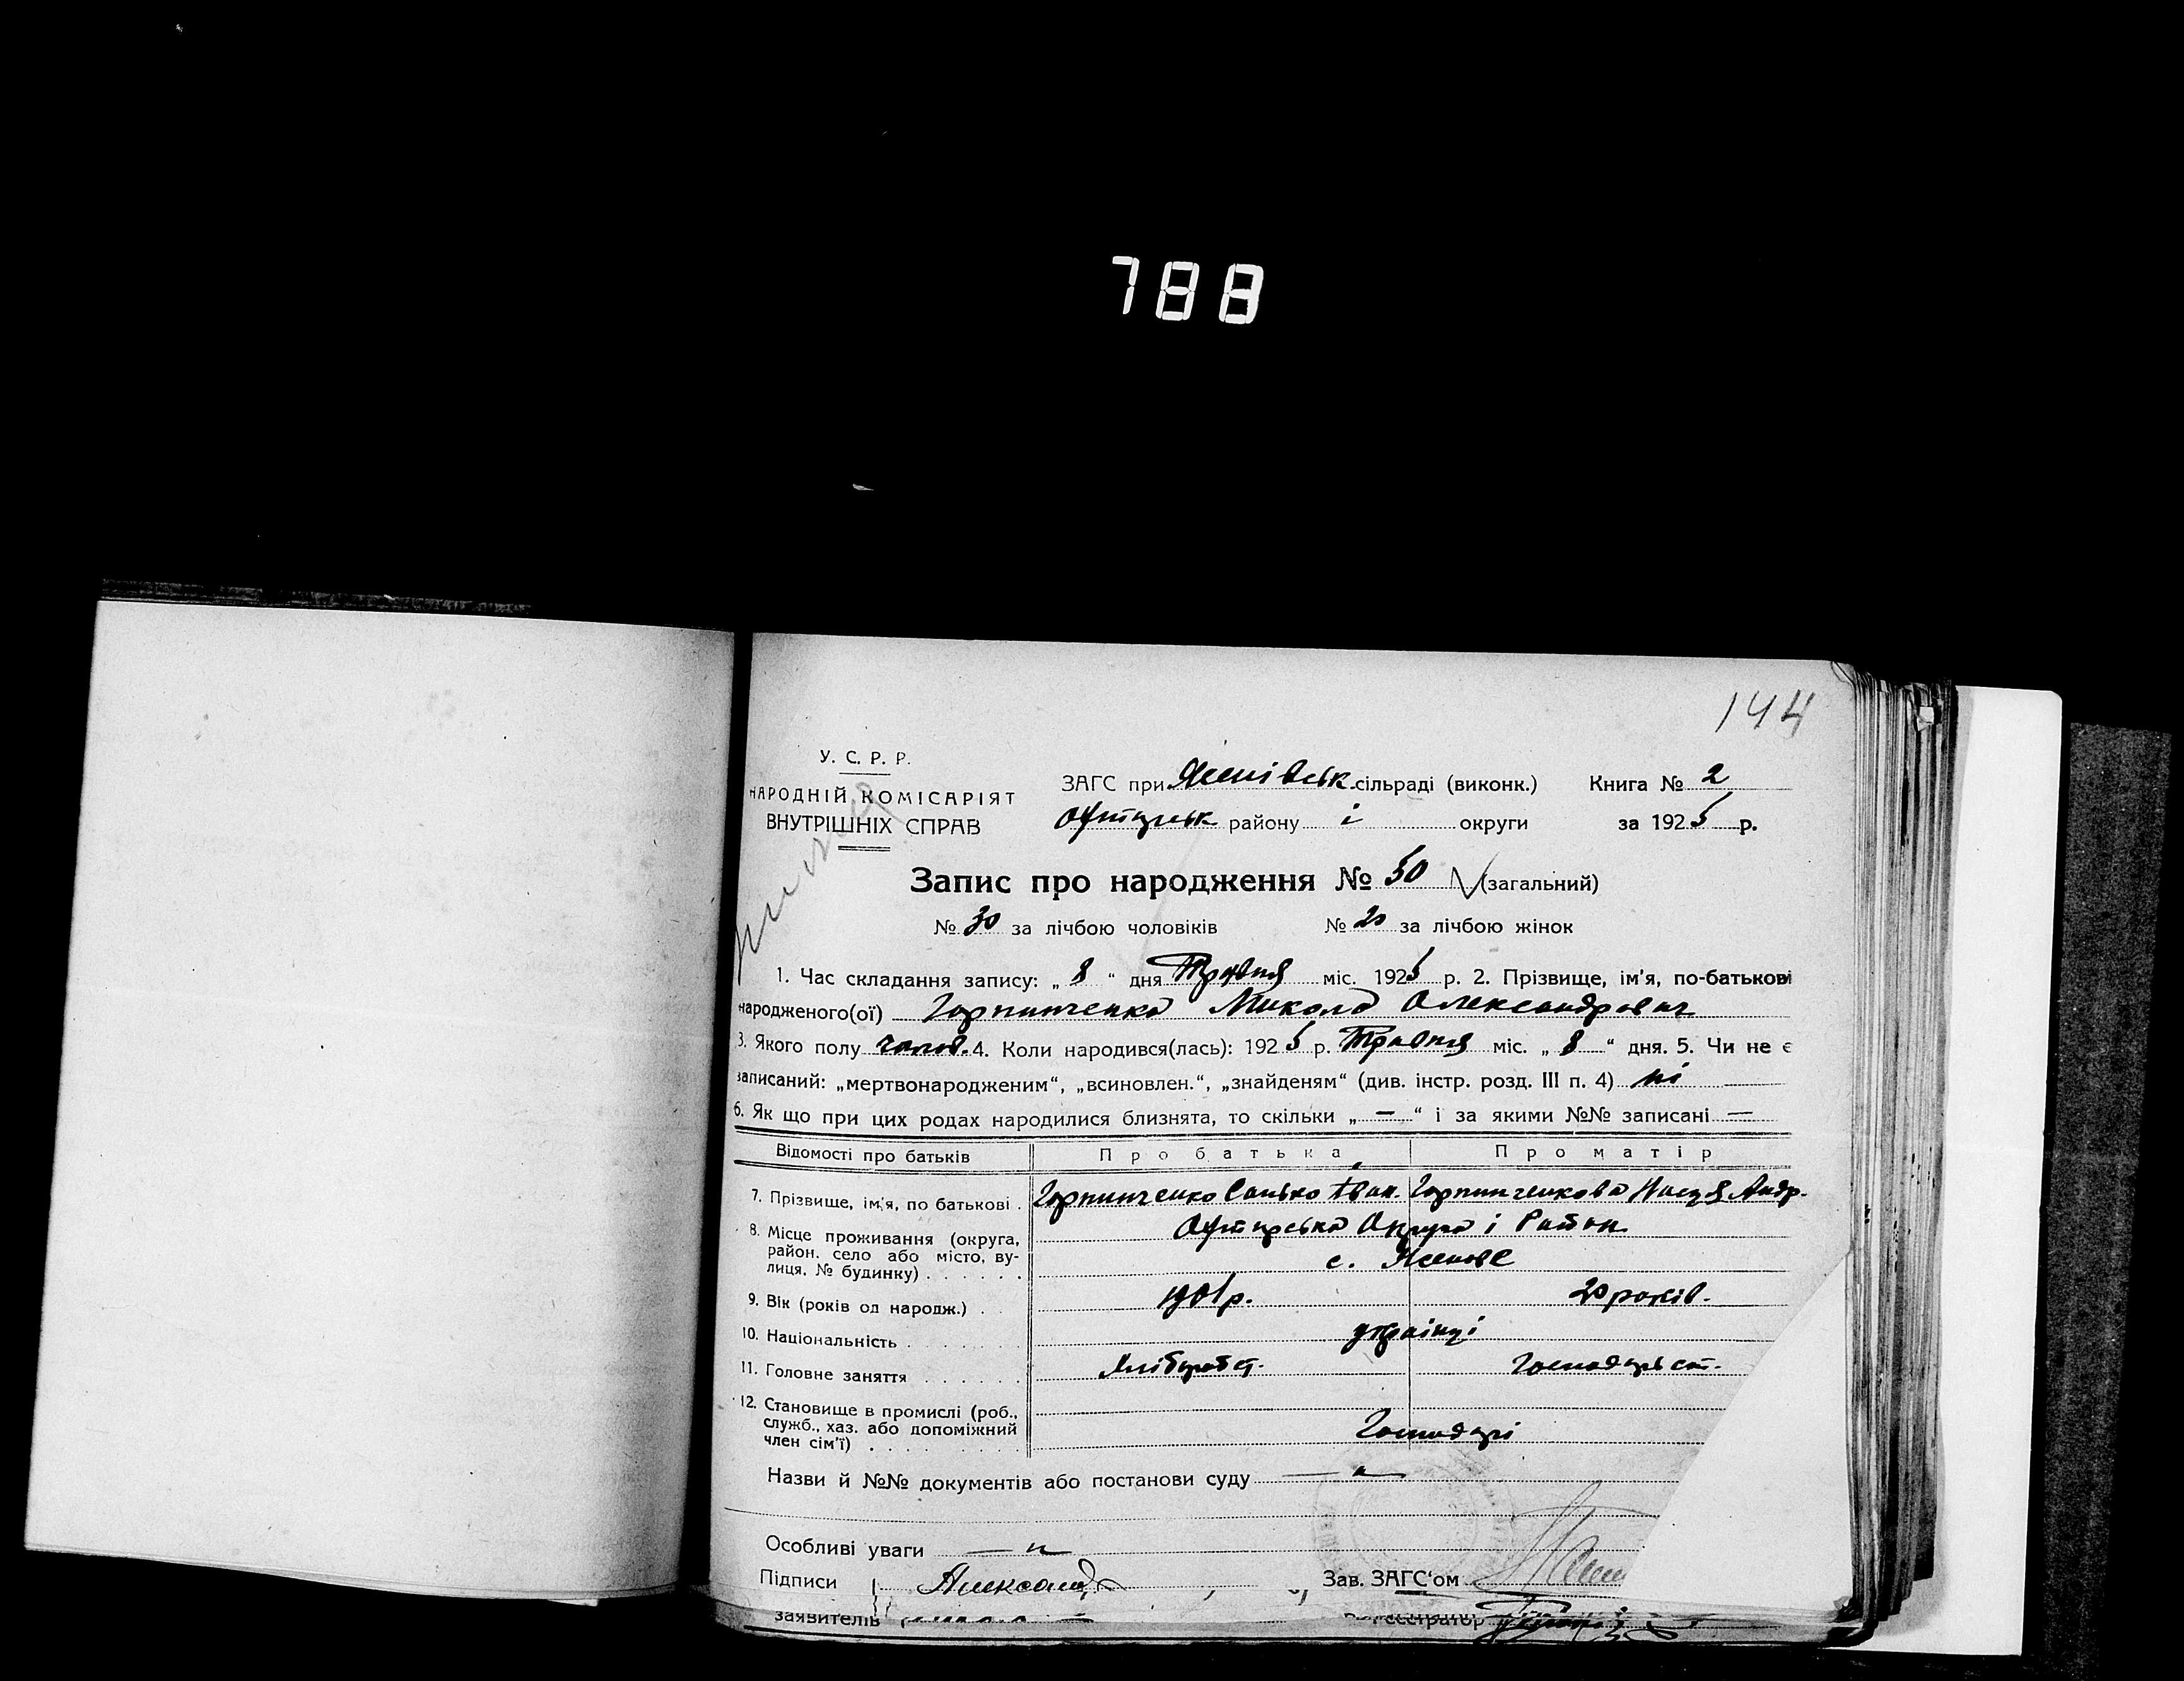 788
144
У. С. Р. Р.
НАРОДНІЙ КОМІСАРІЯТ
ВНУТРІШНІХ СПРАВ
ЗАГС при Ясенівськ. сільраді (виконк.) Книга № 2
Охтирськ району і округи за 1925 р.
Запис про народження № 50 (загальний)
№ 30 за лічбою чоловіків № 20 за лічбою жінок
1. Час складання запису: „ 8 “ дня Травня міс. 1925 р. 2. Прізвище, ім'я, по-батькові
народженого(ої) Горпинченко Микола Олександрович
3. Якого полу чолов. 4. Коли народився(лась): 1925 р. Травня міс. „ 8 “ дня. 5. Чи не є
записаний: „мертвонародженим“, „всиновлен.“, „знайденям“ (див. інстр. розд. III п. 4) ні
6. Як що при цих родах народилися близнята, то скільки „ — “ і за якими №№ записані —
Відомості про батьків Про батька Про матір
7. Прізвище, ім'я, по батькові . Горпинченко Санько Іван. Горпинченкова Настя Андр.
8. Місце проживання (округа, район, село або місто, вулиця, № будинку) . . . . . . Охтирська Округа і Район
с. Ясенове
9. Вік (років од народж.) . . 1901 р. 20 років.
10. Національність . . . . . . українці
11. Головне заняття . . . . . . Хлібороб ст. Господарст.
12. Становище в промислі (роб., служб., хаз. або допоміжний член сім'ї) . . . . Господарі
Назви й №№ документів або постанови суду — " —
Особливі уваги — " —
Підписи Александр Зав. ЗАГС'ом
заявителів Реєстратор